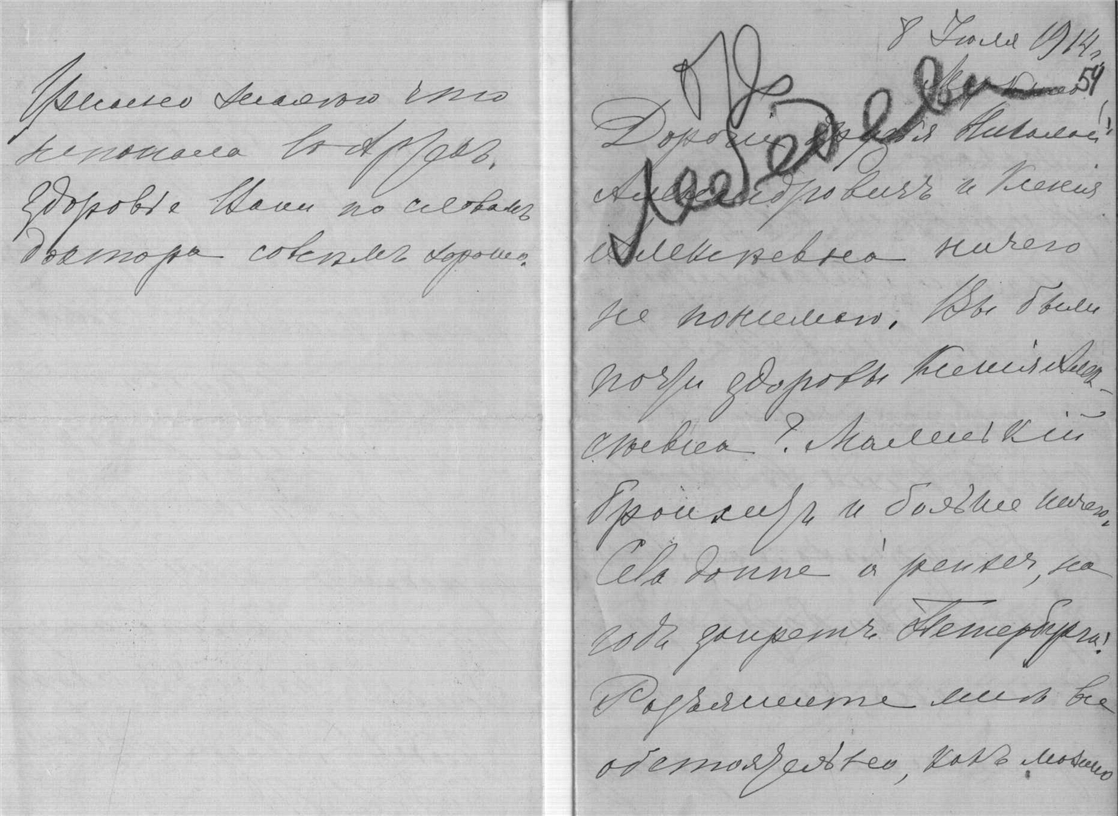 Ужасно жалею что
не попала въ Артекъ.
Здоровье Нани по словамъ
доктора совсѣмъ хорошо.
8 Іюля 1914 г.
54
Лебедеви
Дорогіе друзья Николай
Александровичъ и Ксенія
Алексѣевна ничего
не понимаю. Вы были
почти здоровы Ксенія Алек-
сѣевна? Маленькій
бронхитъ и больше ничего.
Cela donne à penser, на
годъ запретъ Петербурга!
Разъясните мнѣ все
обстоятельно, какъ можно